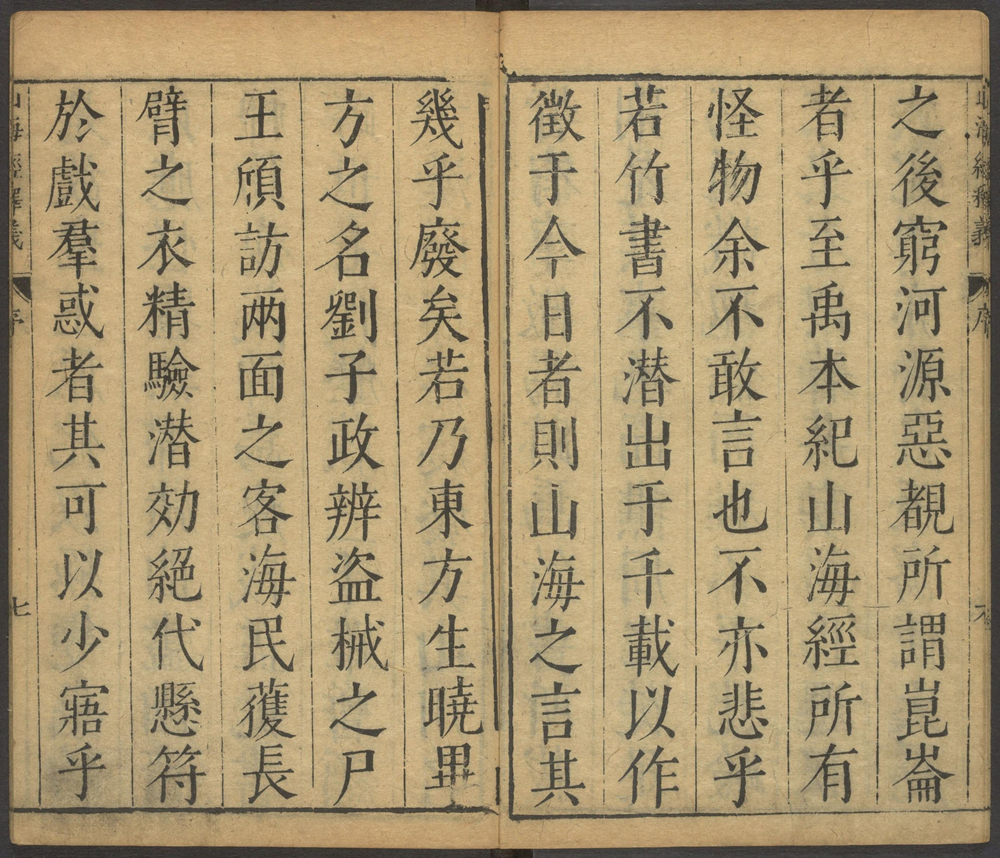 之後窮河源惡覩所謂崑崙
者乎至禹本紀山海經所有
怪物余不敢言也不亦悲乎
若竹書不潜出于千載以作
徵于今日者則山海之言其
幾乎廢矣若乃東方生曉畢
方之名劉子政辨盜械之尸
王頎訪兩面之客海民獲長
臂之衣精驗潜効絕代懸符
於戲羣惑者其可以少寤乎
山海經釋義
序
七